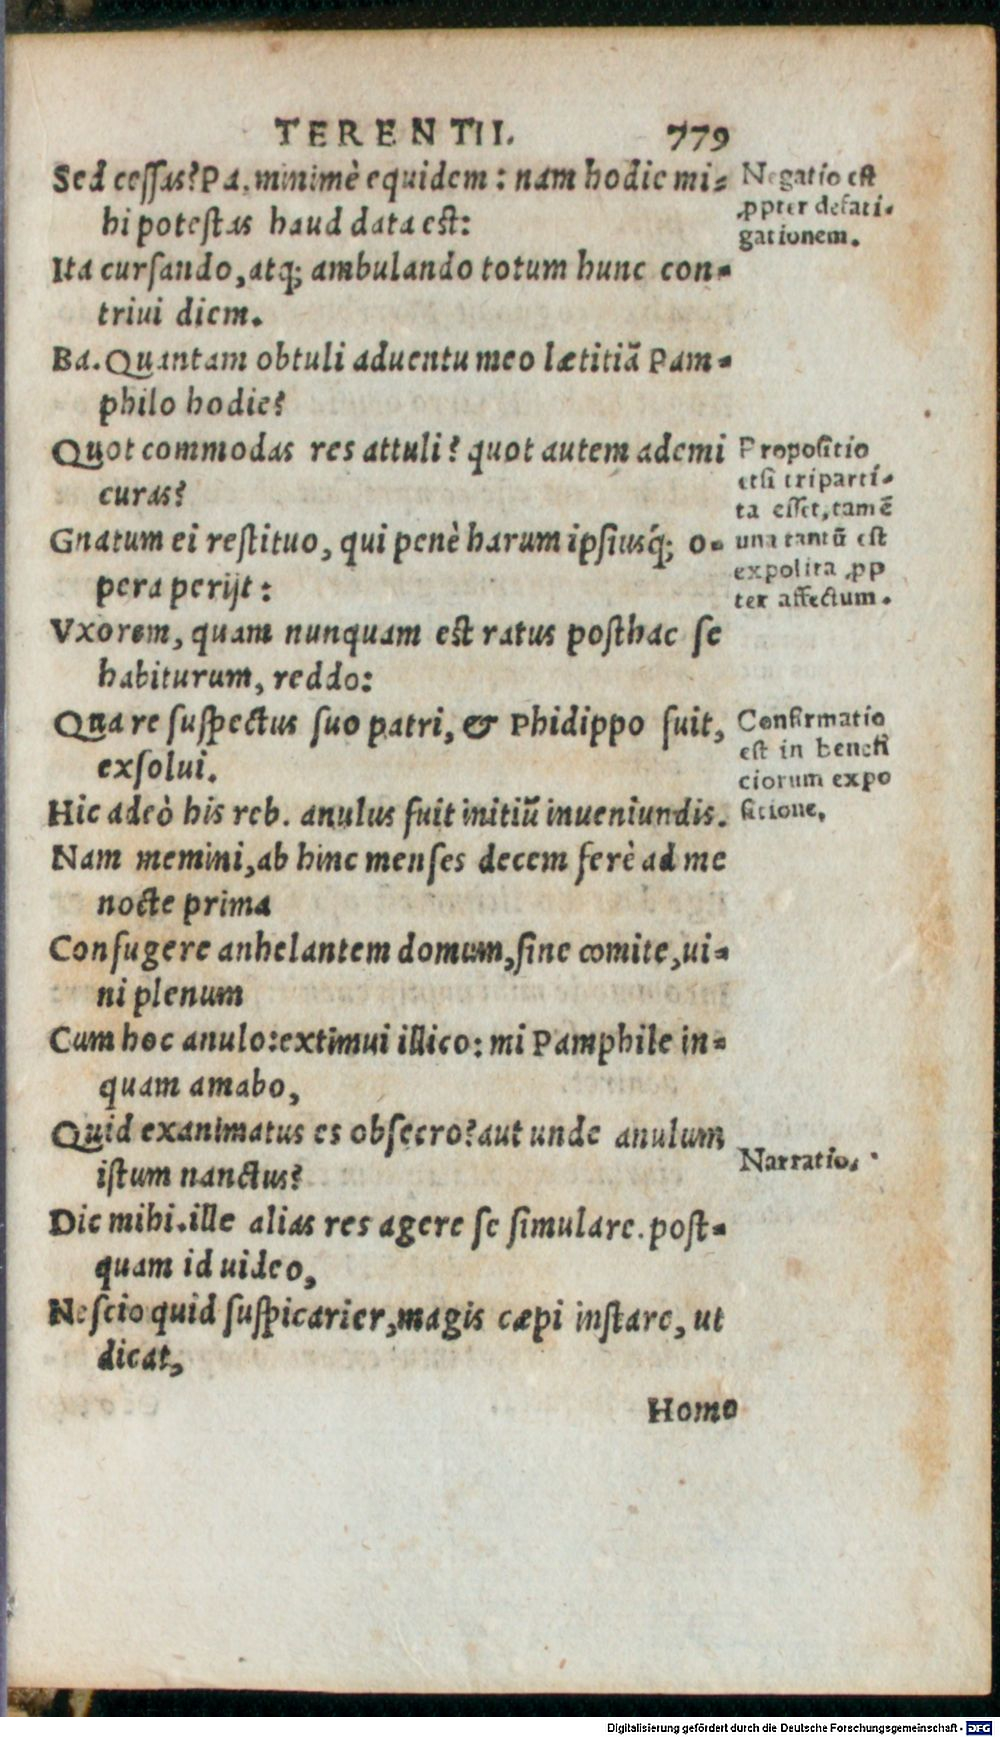 TERENTII. 779
Sed cessas? Pa. minimè equidem: nam hodie mi-
hi potestas haud data est:
Ita cursando, atq; ambulando totum hunc con-
triui diem.
Ba. Quantam obtuli aduentu meo lætitiã Pam-
philo hodie?
Quot commodas res attuli? quot autem ademi
curas?
Gnatum ei restituo, qui penè harum ipsiusq́; o-
pera perijt:
Vxorem, quam nunquam est ratus posthac se
habiturum, reddo:
Qua re suspectus suo patri, & Phidippo fuit,
exsolui.
Hic adeò his reb. anulus fuit initiũ inueniundis.
Nam memini, ab hinc menses decem ferè ad me
nocte prima
Confugere anhelantem domum, sine comite, ui-
ni plenum
Cum hoc anulo: extimui illico: mi Pamphile in-
quam amabo,
Quid exanimatus es obsecro? aut unde anulum
istum nanctus?
Dic mihi. ille alias res agere se simulare. post-
quam id uideo,
Nescio quid suspicarier, magis cæpi instare, ut
dicat,
Homo
Negatio est
ꝓpter defati-
gationem.
Propositio
etsi triparti-
ta esset, tamẽ
una tantũ est
expolita ꝓp
ter affectum.
Confirmatio
est in benefi
ciorum expo
sitione.
Narratio.
Digitalisierung gefördert durch die Deutsche Forschungsgemeinschaft - DFG